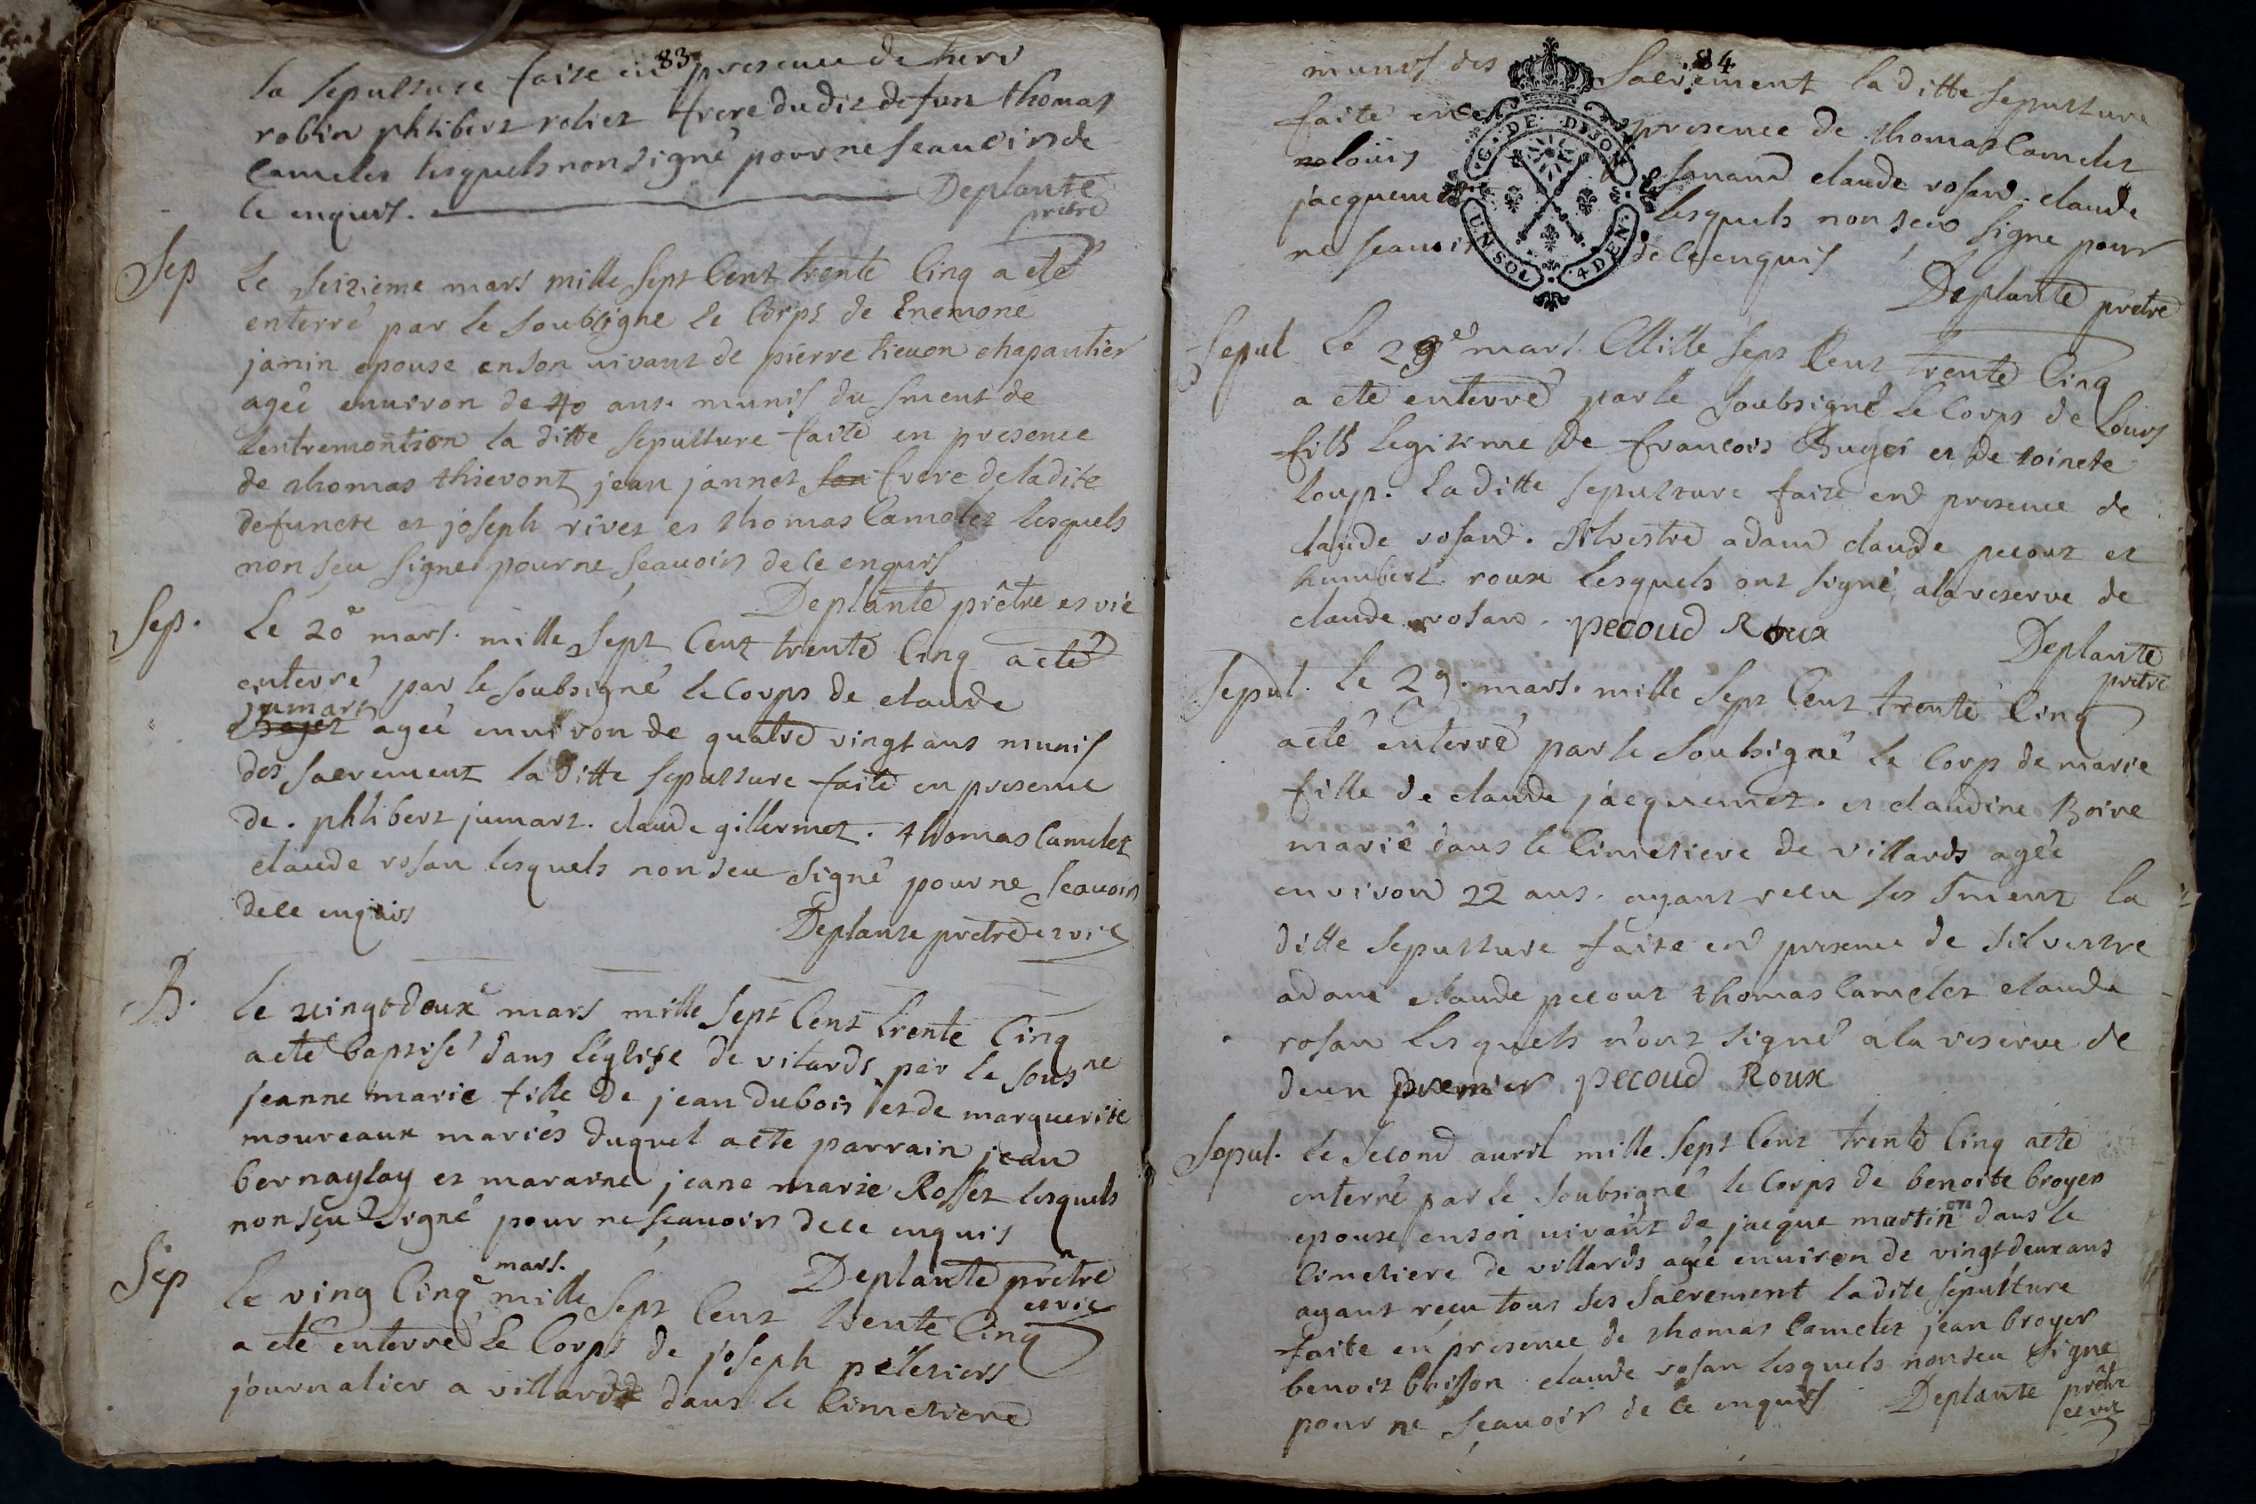 83
la sepulture faite en presence de
robin phlibert reliet frere dudit defun thomas
Camelet lesquels non signé pour ne scauoir de
ce enquis. Deplante
prêtre
Sep Le seizieme mars mille sept Cent trente Cinq a eté
enterré par le soubsigne le Corps de Enemone
janin epouse en son uivant de pierre tieuon chapantier
ageé enuiron de 40 ans. munis du sment de
lextremontion la ditte sepulture faite en presence
de thomas thievont jean jannet frere de ladite
defuncte et joseph rivet et thomas Camelet lesquels
non sçu signe pour ne scauoir de ce enquis
Deplante prêtre et vic
Sep. Le 20e mars. mille sept Cent trente Cinq a eté
enterré par le soubsigné le Corps de claude
jumart
ageé enuiron de quatre vingt ans munis
des sacrement la ditte sepulture faite en presence
de. phlibert jumart. claude gillermet. thomas Camelet
claude rosan lesquels non seu signé pour ne scauoir
de ce enquis
Deplante pretre et vic
B. le uingt deux mars mille sept Cent trente Cinq
a eté baptisé dans l'église de vilards par le sous ne
jeanne marie fille de jean dubois et de marguerite
moureaux mariés duquel a ete parrain jean
bernaylay et mararne jeane marie Rosset lesquels
non sçu signé pour ne scauoir de ce enquis
Deplante prêtre
et vic
Sep Le ving Cinq mars. mille sept Cent trente Cinq
a eté enterré Le Corps de joseph peletiers
journalier a villards dans le Cimetiere
84
munis des Sacrement la ditte sepulture
faite en presence de thomas Camelet
louis claude rosand. claude
jacquemet lesquels non sceu signe pour
ne scauoir de ce enquis
Deplante prêtre
G. DE DIJON
UN SOL 4 DEN.
Sepul Le 29e mars. Mille sept Cent trente Cinq
a ete enterré par le soubsigné le Corps de Louis
fils legitime de francois Buget et de toinete
loup. la ditte sepulture faite en presence de
claude rosand. silvestre adam claude pecout et
humbert roux lesquels ont signé a la reserve de
claude rosan. pecoud Roux
Deplante
pretre
Sepul. Le 29. mars. mille sept Cent trente Cinq
a eté enterré par le soubsigné le Corps de marie
fille de claude jacquemet. et claudine Boire
marié dans le Cimetiere de villards ageé
environ 22 ans. ayant recu ses sment la
ditte sepulture faite en presence de silvestre
adam claude pecout thomas Camelet claude
rosan lesquels n'ont signé a la reserve de
deun premier pecoud Roux
Sepul. Le second auril mille sept Cent trente Cinq a ete
enterré par le soubsigné le Corps de benoite broyer
epouse en son uivant de jacque martin dans le
Cimetiere de villards ageé enuiron de vingt deux ans
ayant reçu tous ses sacrement la dite sepulture
faite en presence de thomas Camelet jean broyer
benoit brison claude rosan lesquels non seu signe
pour ne scauoir de ce enquis Deplante prêtre
et vic